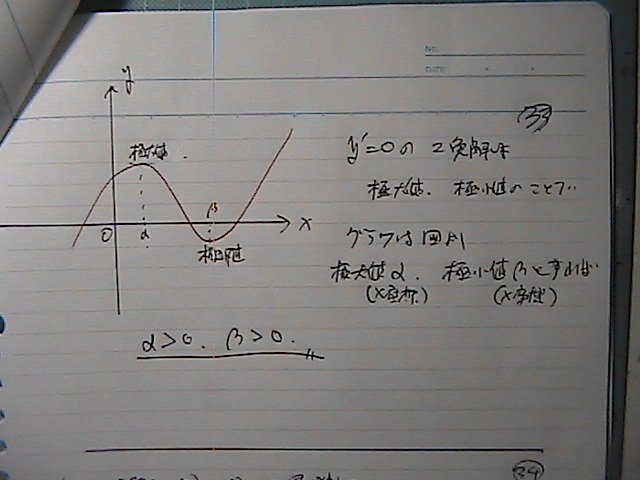 No.
DATE
33
y
極大値
y'=0の2実解は
極大値、極小値のことで
β
0
α
x
極小値
グラフは図より
極大値α、極小値βとすれば
(x座標) (x座標)
α>0、β>0.
34